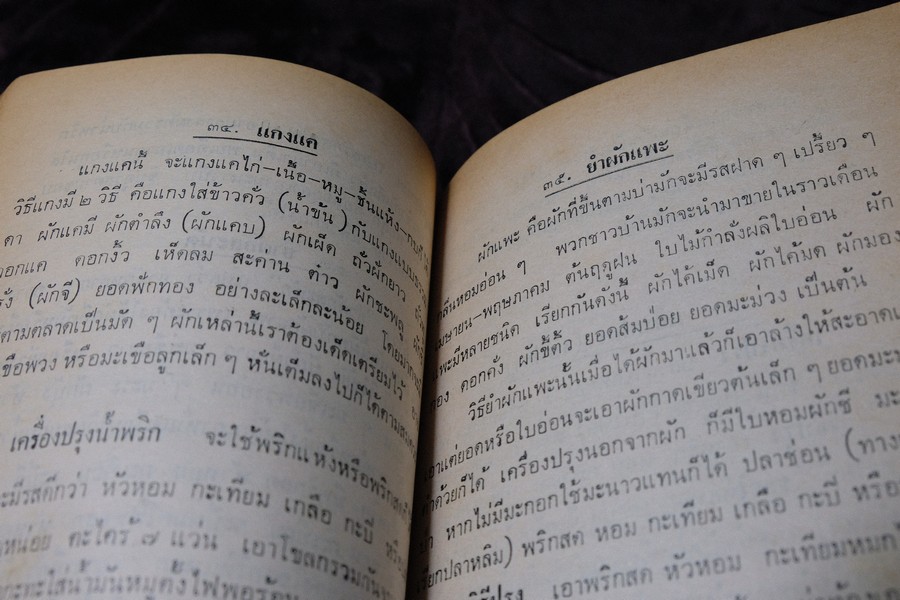 ๓๔. แกงแค
แกงแคนี้ จะแกงแคไก่—เนื้อ—หมู—ชิ้นแห้ง—กบก็
วิธีแกงมี ๒ วิธี คือแกงใส่ข้าวคั่ว (น้ำข้น) กับแกงแบบ
ดา ผักแคมี ผักตำลึง (ผักแคบ) ผักเผ็ด ถั่วฝักยาว
ดอกแค ดอกงิ้ว เห็ดลม สะค้าน ตำว ผักชะพลู
(ผักจี) ยอดพักทอง อย่างละเล็กละน้อย โดยมาก
ตามตลาดเป็นมัด ๆ ผักเหล่านี้เราต้องเด็ดเตรียมไว้
เขือพวง หรือมะเขือลูกเล็ก ๆ หั่นเต็มลงไปก็ได้ตาม
เครื่องปรุงน้ำพริก จะใช้พริกแห้งหรือพริกสด
จะมีรสดีกว่า หัวหอม กะเทียม เกลือ กะบี่
หน่อย ตะไคร้ ๗ แว่น เอาโขลกรวมกัน
กะทะใส่น้ำมันหมูตั้งไฟพอร้อน
๓๕. ยำผักแพะ
ผักแพะ คือผักที่ขึ้นตามป่ามักจะมีรสฝาด ๆ เปรี้ยว ๆ
กลิ่นหอมอ่อน ๆ พวกชาวบ้านมักจะนำมาขายในราวเดือน
เมษายน—พฤษภาคม ต้นฤดูฝน ใบไม้กำลังผลิใบอ่อน ผัก
แพะมีหลายชนิด เรียกกันดังนี้ ผักไค้เม็ด ผักไค้มด ผักมอง
ดอกคั่ง ผักขี้ติ้ว ยอดส้มบ่อย ยอดมะม่วง เป็นต้น
วิธียำผักแพะนั้นเมื่อได้ผักมาแล้วก็เอาล้างให้สะอาด
เอาแต่ยอดหรือใบอ่อนจะเอาผักกาดเขียวต้นเล็ก ๆ ยอดมะ
ด้วยก็ได้ เครื่องปรุงนอกจากผัก ก็มีใบหอมผักชี มะ
หากไม่มีมะกอกใช้มะนาวแทนก็ได้ ปลาช่อน (ทาง
เรียกปลาหลิม) พริกสด หอม กะเทียม เกลือ กะบี่ หรือ
วิธีปรุง เอาพริกสด หัวหอม กะเทียมหมก